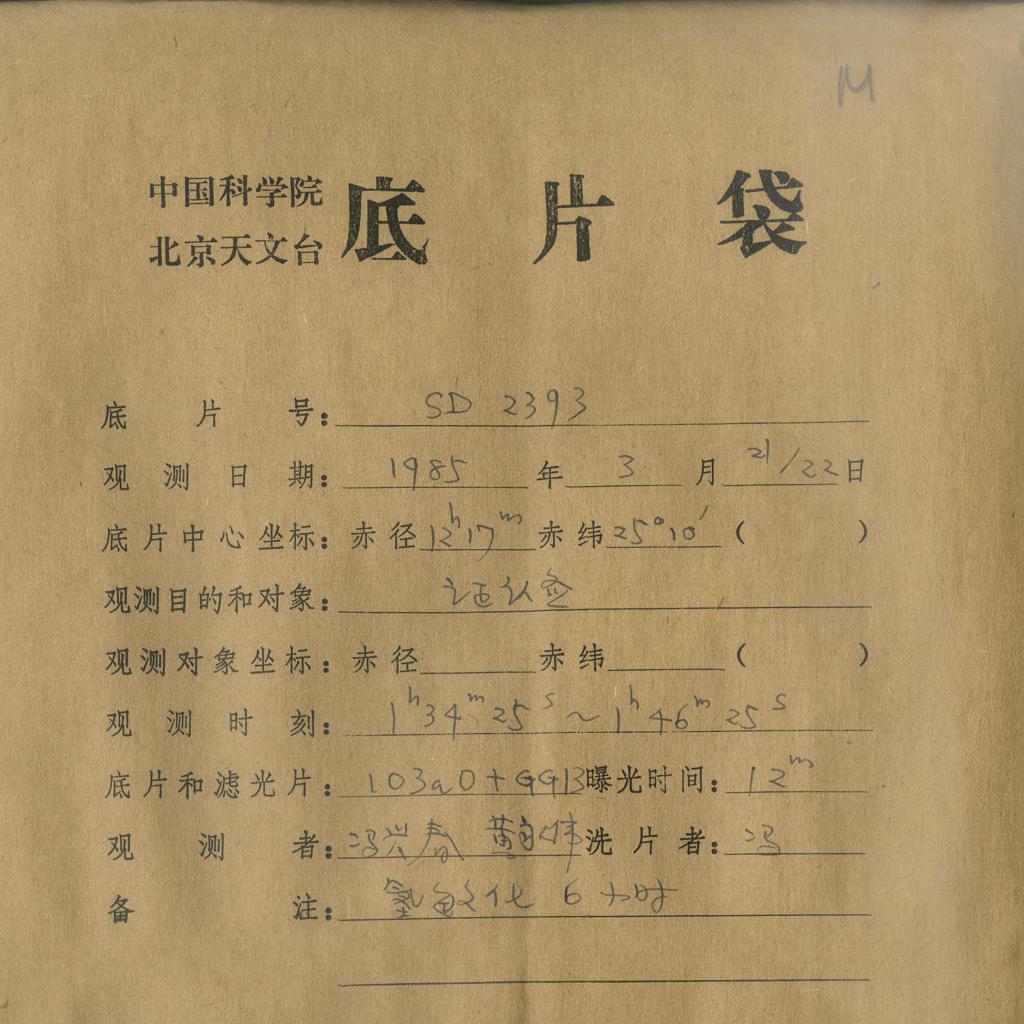 M
中国科学院
北京天文台
底片袋
底片号: SD 2393
观测日期: 1985 年 3 月 21/22 日
底片中心坐标: 赤径 12ʰ17ᵐ 赤纬 25°10′ ( )
观测目的和对象: 证认
观测对象坐标: 赤径 赤纬 ( )
观测时刻: 1ʰ34ᵐ25ˢ ~ 1ʰ46ᵐ25ˢ
底片和滤光片: 103aO+GG13 曝光时间: 12ᵐ
观测者: 冯兴春 黄 伟 洗片者: 冯
备注: 氢敏化 6 小时